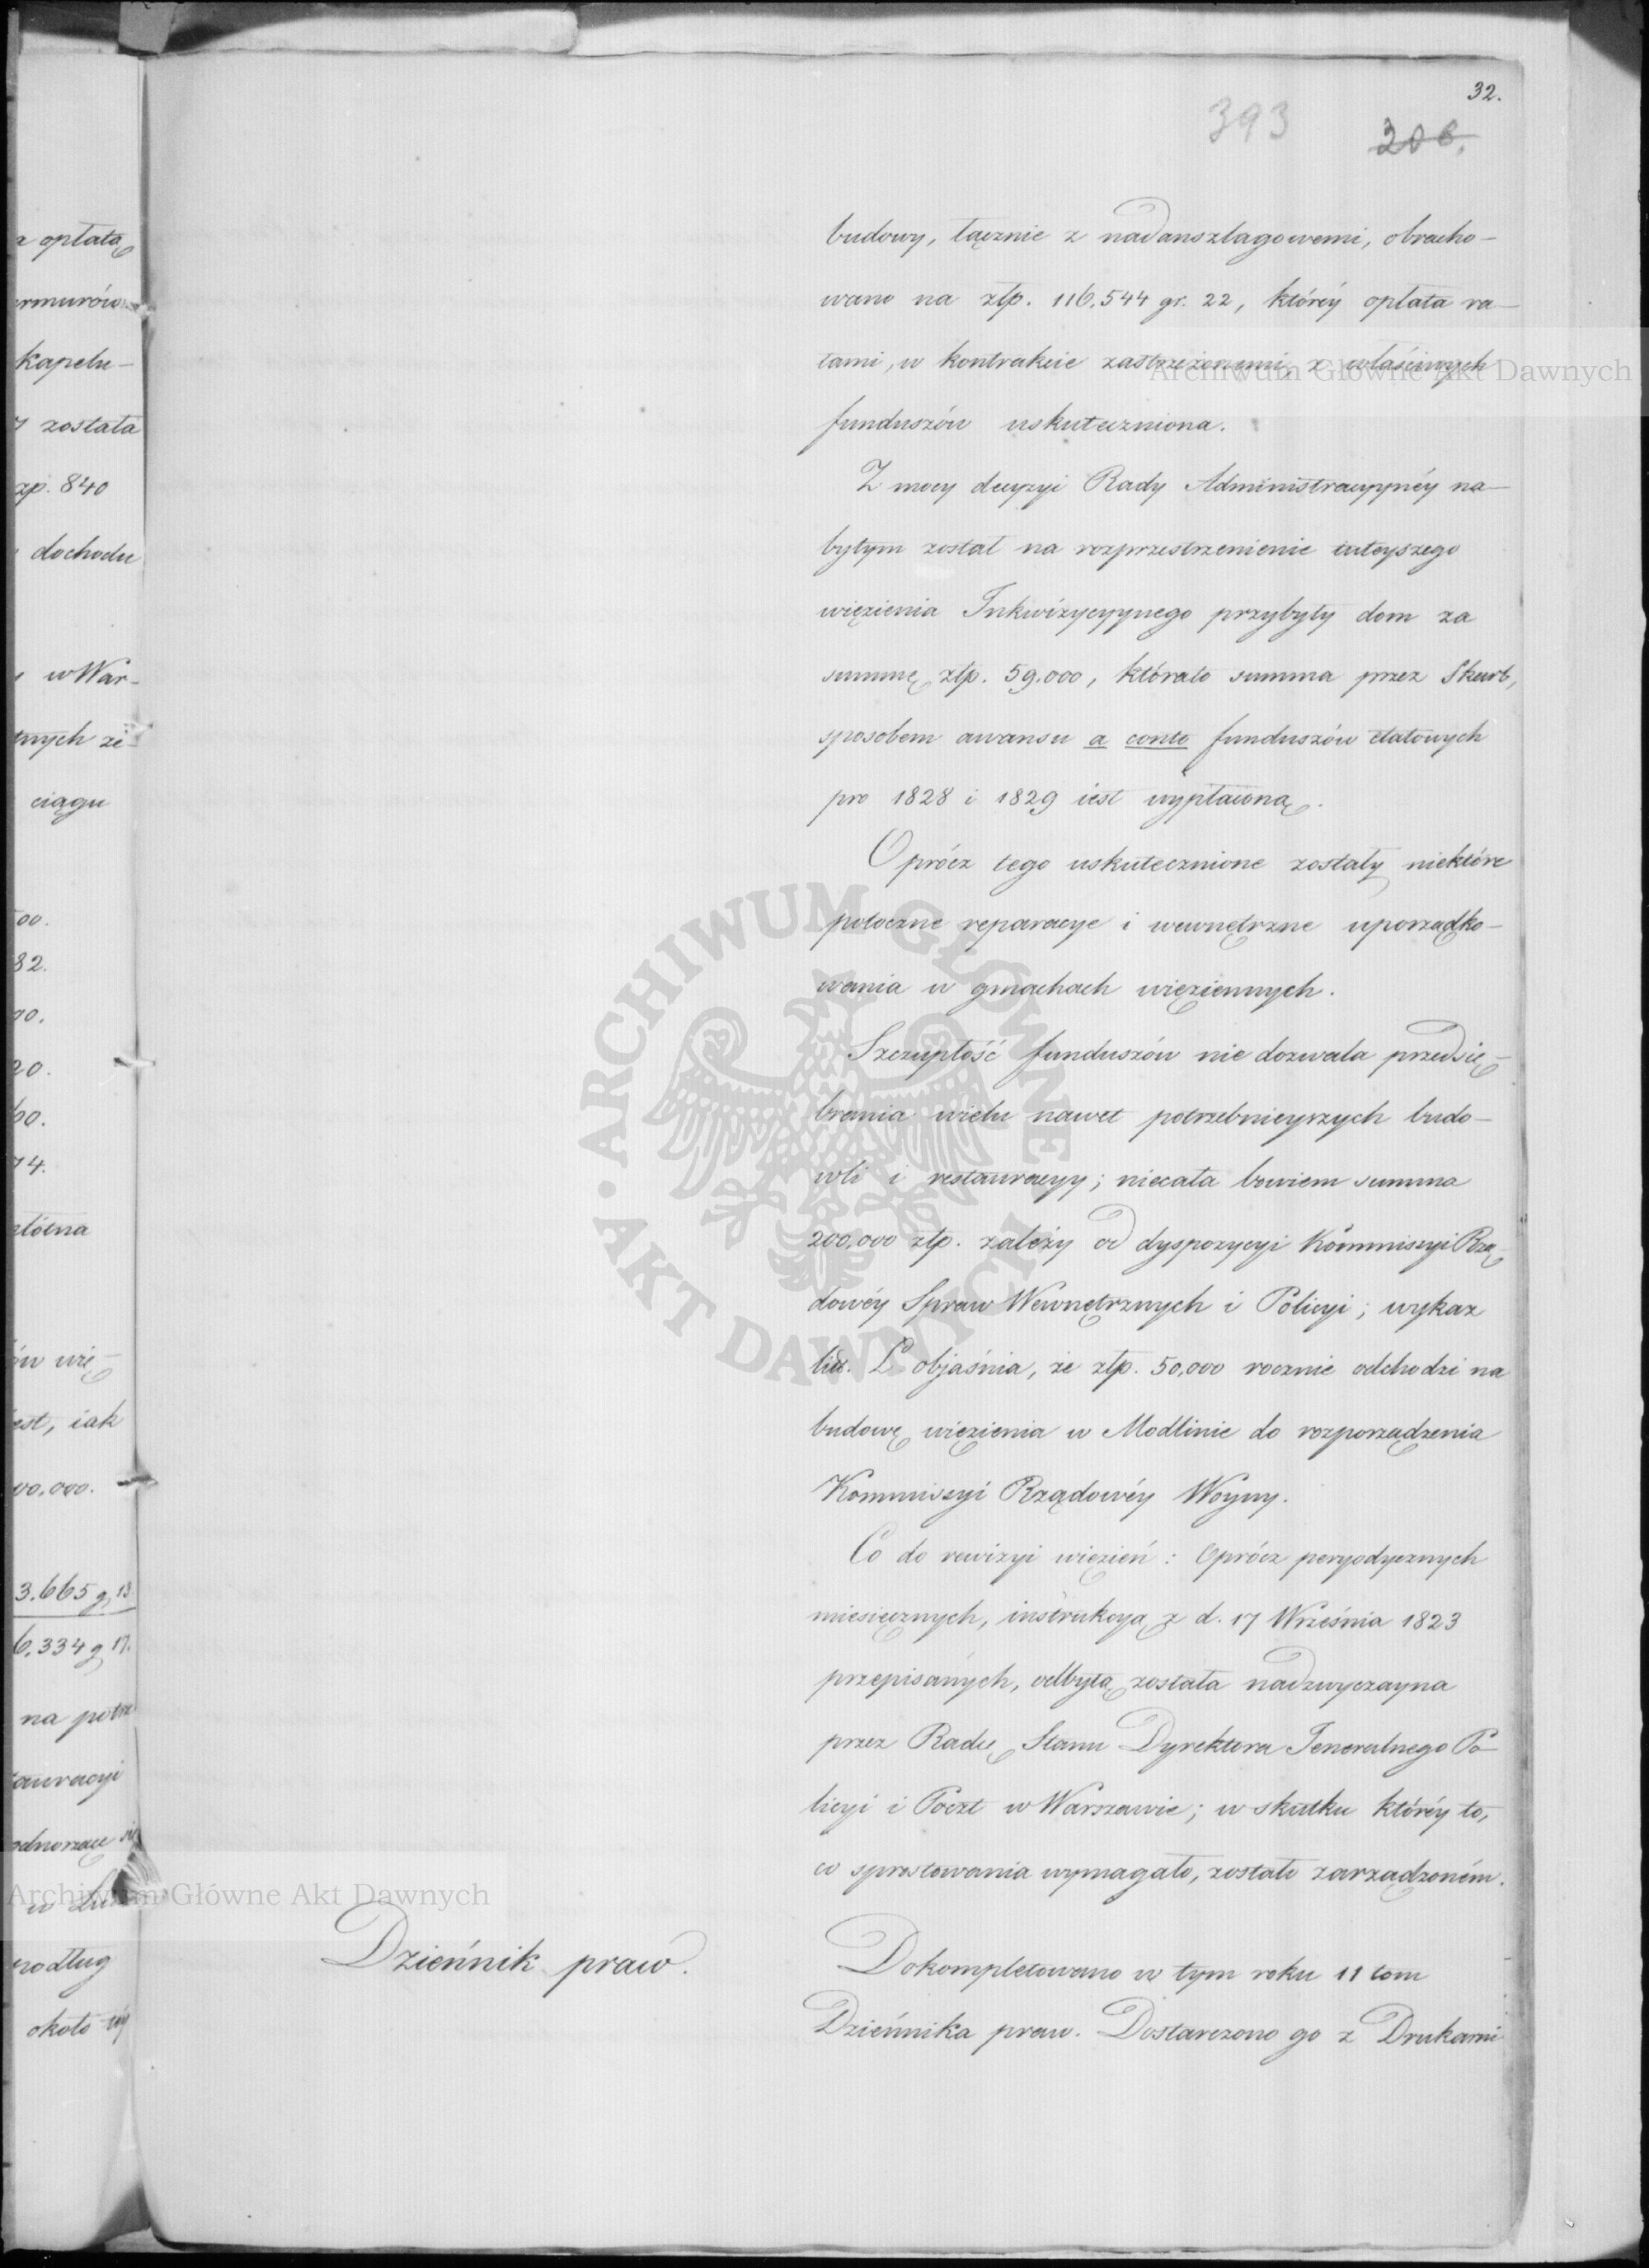 32.
393
206.
budowy, łącznie z nadanszlagowemi, obracho-
wano na złp. 116.544 gr. 22, któréy opłata ra-
tami, w kontrakcie zastrzeżonemi, z właściwych
funduszów uskuteczniona.
Z mocy decyzyi Rady Administracyynéy na-
bytym został na rozprzestrzenienie tuteyszego
więzienia Inkwizycyynego przybyły dom za
summę złp. 59.000, którato summa przez Skarb,
sposobem awansu a conto funduszów etatowych
pro 1828 i 1829 iest wypłaconą.
Oprócz tego uskutecznione zostały niektóre
potoczne reparacye i wewnętrzne uporządko-
wania w gmachach więziennych.
Szczupłość funduszów nie dozwala przedsię-
brania wielu nawet potrzebnieyszych budo-
wli i restauracyy; niecała bowiem summa
200.000 złp. zależy od dyspozycyi Kommissyi Rzą-
dowéy Spraw Wewnętrznych i Policyi; wykaz
litt. L objaśnia, że złp. 50,000 rocznie odchodzi na
budowę więzienia w Modlinie do rozporządzenia
Kommissyi Rządowéy Woyny.
Co do rewizyi więzień: Oprócz peryodycznych
miesięcznych, instrukcyą z d. 17 Września 1823
przepisanych, odbytą została nadzwyczayna
przez Radcę Stanu Dyrektora Jeneralnego Po-
licyi i Poczt w Warszawie; w skutku któréy to,
co sprostowania wymagało, zostało zarządzoném.
Dzieńnik praw.
Dokompletowano w tym roku 11 tom
Dzieńnika praw. Dostarczono go z Drukarni
a opłatą
ermurów
kapelu-
y została
zp. 840
dochodu
w War-
ciągu
00.
82.
20.
60.
74.
płótna
ów wię-
est, iak
00,000.
3.665 g. 13
6.334 g 17.
na potrz
tauracyi
podług
około
Archiwum Główne Akt Dawnych
ARCHIWUM GŁÓWNE AKT DAWNYCH
Archiwum Główne Akt Dawnych